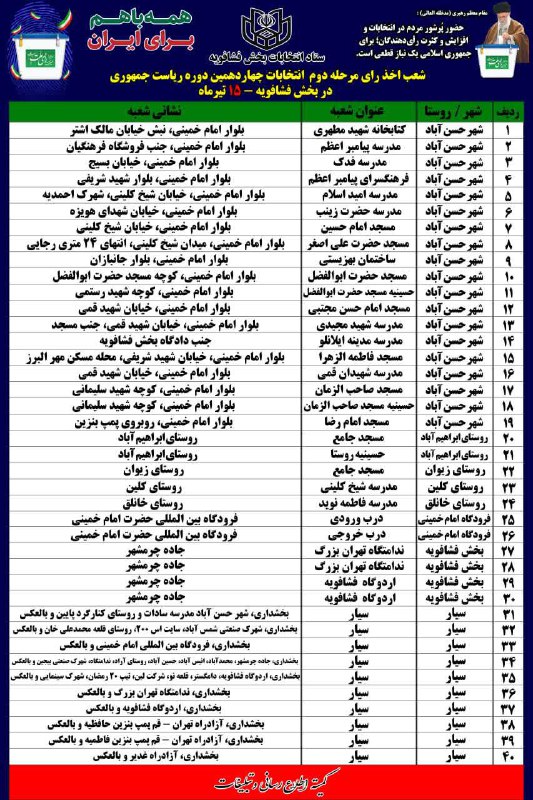 همه با هم
برای ایران
ستاد انتخابات بخش فشافویه
مقام معظم رهبری (مدظله العالی) :
حضور پُرشور مردم در انتخابات و
افزایش و کثرت رأی‌دهندگان! برای
جمهوری اسلامی یک نیاز قطعی است.
شعب اخذ رای مرحله دوم انتخابات چهاردهمین دوره ریاست جمهوری
در بخش فشافویه - ۱۵ تیرماه
ردیف شهر / روستا عنوان شعبه نشانی شعبه
۱ شهر حسن آباد کتابخانه شهید مطهری بلوار امام خمینی، نبش خیابان مالک اشتر
۲ شهر حسن آباد مدرسه پیامبر اعظم بلوار امام خمینی، جنب فروشگاه فرهنگیان
۳ شهر حسن آباد مدرسه فدک بلوار امام خمینی، خیابان بسیج
۴ شهر حسن آباد فرهنگسرای پیامبر اعظم بلوار امام خمینی، بلوار شهید شریفی
۵ شهر حسن آباد مدرسه امید اسلام بلوار امام خمینی، خیابان شیخ کلینی، شهرک احمدیه
۶ شهر حسن آباد مدرسه حضرت زینب بلوار امام خمینی، خیابان شهدای هویزه
۷ شهر حسن آباد مسجد امام حسین بلوار امام خمینی، خیابان شیخ کلینی
۸ شهر حسن آباد مسجد حضرت علی اصغر بلوار امام خمینی، میدان شیخ کلینی، انتهای ۲۴ متری رجایی
۹ شهر حسن آباد ساختمان بهزیستی بلوار امام خمینی، بلوار جانبازان
۱۰ شهر حسن آباد مسجد حضرت ابوالفضل بلوار امام خمینی، کوچه مسجد حضرت ابوالفضل
۱۱ شهر حسن آباد حسینیه مسجد حضرت ابوالفضل بلوار امام خمینی، کوچه شهید رستمی
۱۲ شهر حسن آباد مسجد امام حسن مجتبی بلوار امام خمینی، خیابان شهید قمی
۱۳ شهر حسن آباد مدرسه شهید مجیدی بلوار امام خمینی، خیابان شهید قمی، جنب مسجد
۱۴ شهر حسن آباد مدرسه مدینه ایلانلو جنب دادگاه بخش فشافویه
۱۵ شهر حسن آباد مسجد فاطمه الزهرا بلوار امام خمینی، خیابان شهید شریفی، محله مسکن مهر البرز
۱۶ شهر حسن آباد مدرسه شهیدان قمی بلوار امام خمینی، خیابان شهید قمی
۱۷ شهر حسن آباد مسجد صاحب الزمان بلوار امام خمینی، کوچه شهید سلیمانی
۱۸ شهر حسن آباد حسینیه مسجد صاحب الزمان بلوار امام خمینی، کوچه شهید سلیمانی
۱۹ شهر حسن آباد مسجد امام رضا بلوار امام خمینی، روبروی پمپ بنزین
۲۰ روستای ابراهیم آباد مسجد جامع روستای ابراهیم آباد
۲۱ روستای ابراهیم آباد حسینیه روستا روستای ابراهیم آباد
۲۲ روستای زیوان مسجد جامع روستای زیوان
۲۳ روستای کلین مدرسه شیخ کلینی روستای کلین
۲۴ روستای خانلق مدرسه فاطمه نوید روستای خانلق
۲۵ فرودگاه امام خمینی درب ورودی فرودگاه بین المللی حضرت امام خمینی
۲۶ فرودگاه امام خمینی درب خروجی فرودگاه بین المللی حضرت امام خمینی
۲۷ بخش فشافویه ندامتگاه تهران بزرگ جاده چرمشهر
۲۸ بخش فشافویه ندامتگاه تهران بزرگ جاده چرمشهر
۲۹ بخش فشافویه اردوگاه فشافویه جاده چرمشهر
۳۰ بخش فشافویه اردوگاه فشافویه جاده چرمشهر
۳۱ سیار سیار بخشداری، شهر حسن آباد مدرسه سادات و روستای کنارگرد پایین و بالعکس
۳۲ سیار سیار بخشداری، شهرک صنعتی شمس آباد، سایت اس ۲۰۰، روستای قلعه محمدعلی خان و بالعکس
۳۳ سیار سیار بخشداری، فرودگاه بین المللی امام خمینی و بالعکس
۳۴ سیار سیار بخشداری، جاده چرمشهر، محمدآباد، انیس آباد، حسین آباد، روستای آراد، ندامتگاه، شهرک صنعتی بیجین و بالعکس
۳۵ سیار سیار بخشداری، اردوگاه فشافویه، دامگستر، قلعه نو، شرکت لبن، تیپ ۲۰ رمضان، شهرک سینمایی و بالعکس
۳۶ سیار سیار بخشداری، ندامتگاه تهران بزرگ و بالعکس
۳۷ سیار سیار بخشداری، اردوگاه فشافویه و بالعکس
۳۸ سیار سیار بخشداری، آزادراه تهران - قم پمپ بنزین حافظیه و بالعکس
۳۹ سیار سیار بخشداری، آزادراه تهران - قم پمپ بنزین فاطمیه و بالعکس
۴۰ سیار سیار بخشداری، آزادراه غدیر و بالعکس
کمیته اطلاع رسانی و تبلیغات